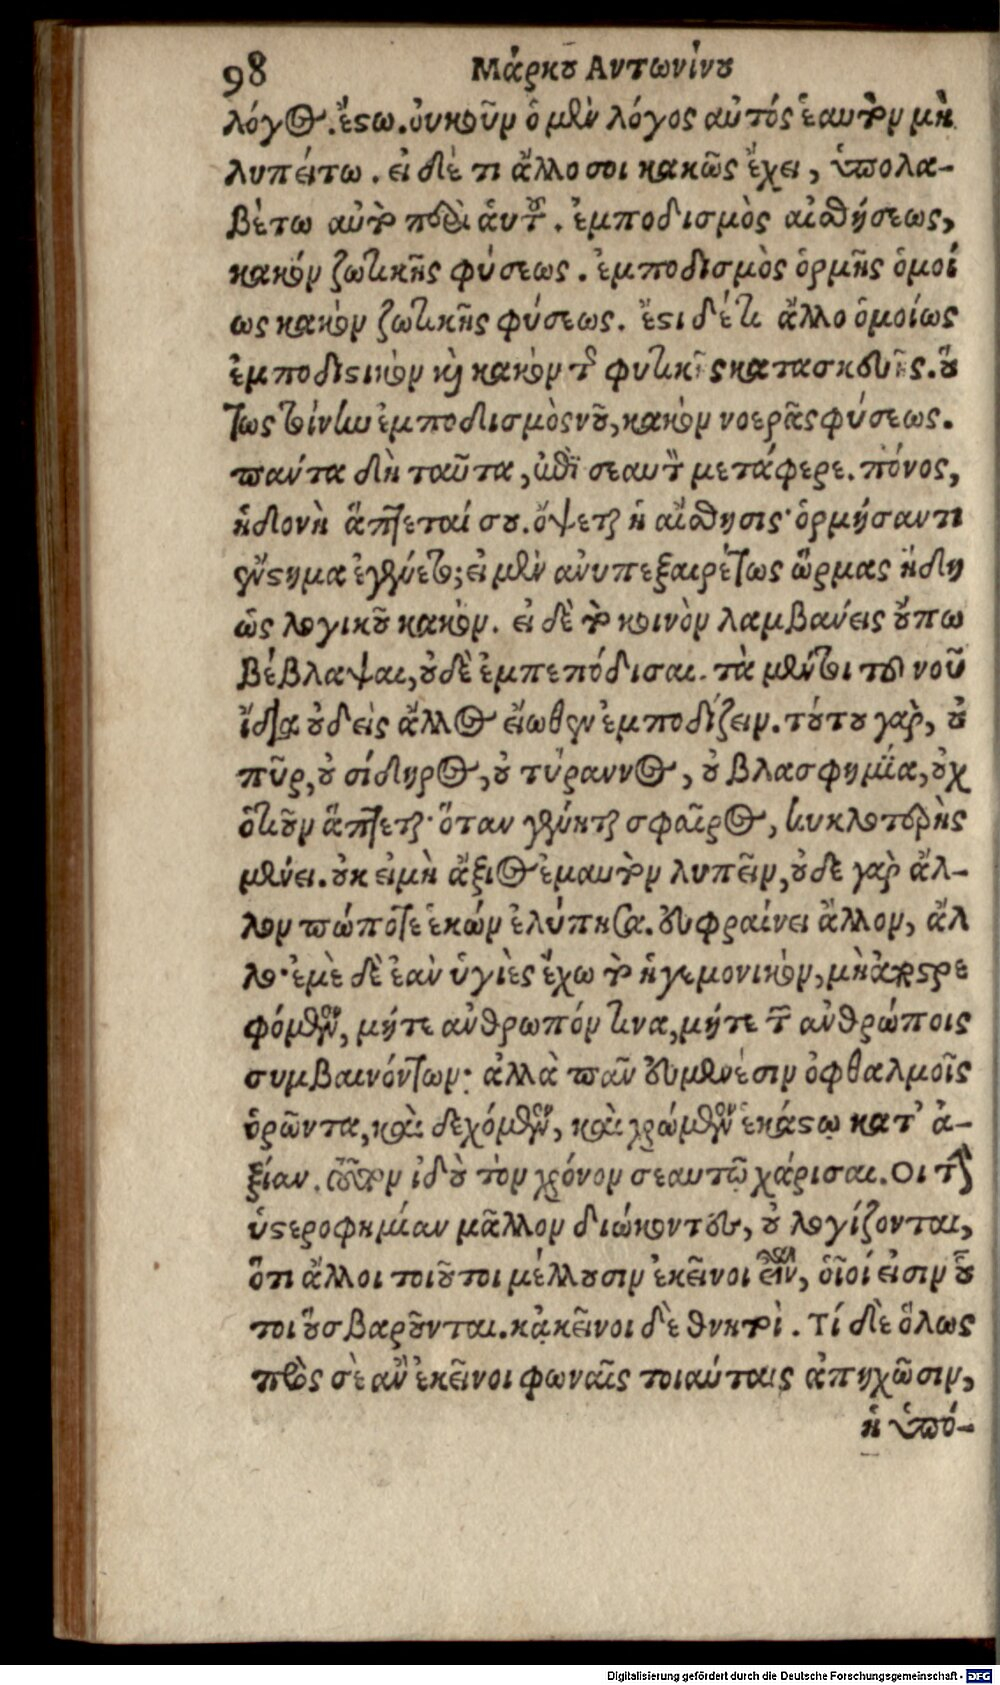 98 Μάρκου Αντωνίνου
λόγος. ἔστω. οὐκοῦν ὁ μὲν λόγος αὐτός ἑαυτὸν μὴ
λυπείτω. εἰ δὲ τι ἄλλο σοι κακῶς ἔχει, ὑπολα-
βέτω αὐτὸ περὶ ἁυτοῦ. ἐμποδισμὸς αἰσθήσεως,
κακὸν ζωτικῆς φύσεως. ἐμποδισμὸς ὁρμῆς ὁμοί
ως κακὸν ζωτικῆς φύσεως. ἔστι δέ τι ἄλλο ὁμοίως
ἐμποδιστικὸν καὶ κακὸν τῆς φυτικῆς κατασκευῆς. οὕ
τως τοίνυν ἐμποδισμὸς νοῦ, κακὸν νοερᾶς φύσεως.
πάντα δὴ ταῦτα, ἐπὶ σεαυτὸν μετάφερε. πόνος,
ἡδονὴ ἅπτεταί σου. ὄψεται ἡ αἴσθησις· ὁρμήσαντι
ἔνστημα ἐγένετο; εἰ μὲν ἀνυπεξαιρέτως ὥρμας ἤδη
ὡς λογικοῦ κακόν. εἰ δὲ τὸ κοινὸν λαμβάνεις οὔπω
βέβλαψαι, οὐδὲ ἐμπεπόδισαι. τὰ μέντοι τοῦ νοῦ
ἴδια οὐδεὶς ἄλλος εἴωθεν ἐμποδίζειν. τούτου γὰρ, οὐ
πῦρ, οὐ σίδηρος, οὐ τύραννος, οὐ βλασφημία, οὐχ
ὁτιοῦν ἅπτεται· ὅταν γένηται σφαῖρος, κυκλοτερὴς
μένει. οὐκ εἰμὴ ἄξιος ἐμαυτὸν λυπεῖν, οὐδε γὰρ ἄλ-
λον πώποτε ἑκών ἐλύπησα. εὐφραίνει ἄλλον, ἄλ
λο· ἐμὲ δὲ ἐὰν ὑγιὲς ἔχω τὸ ἡγεμονικὸν, μὴ ἀποστρε
φόμενον, μήτε ἀνθρωπόν τινα, μήτε τῶν ἀνθρώποις
συμβαινόντων· ἀλλὰ πᾶν εὐμενέσιν ὀφθαλμοῖς
ὁρῶντα, καὶ δεχόμενον, καὶ χρώμενον ἑκάστῳ κατ' ἀ-
ξίαν. τοῦτον ἰδοὺ τὸν χρόνον σεαυτῷ χάρισαι. Οι τὴν
ὑστεροφημίαν μᾶλλον διώκοντες, οὐ λογίζονται,
ὅτι ἄλλοι τοιοῦτοι μέλλουσιν ἐκεῖνοι εἶναι, οἷοί εἰσιν οὗ
τοι οὓς βαροῦνται. κᾀκεῖνοι δὲ θνητοὶ. Τί δὲ ὅλως
πρὸς σὲ ἂν ἐκεῖνοι φωναῖς τοιαύταις ἀπηχῶσιν,
ἢ ὑπό-
Digitalisierung gefördert durch die Deutsche Forschungsgemeinschaft - DFG